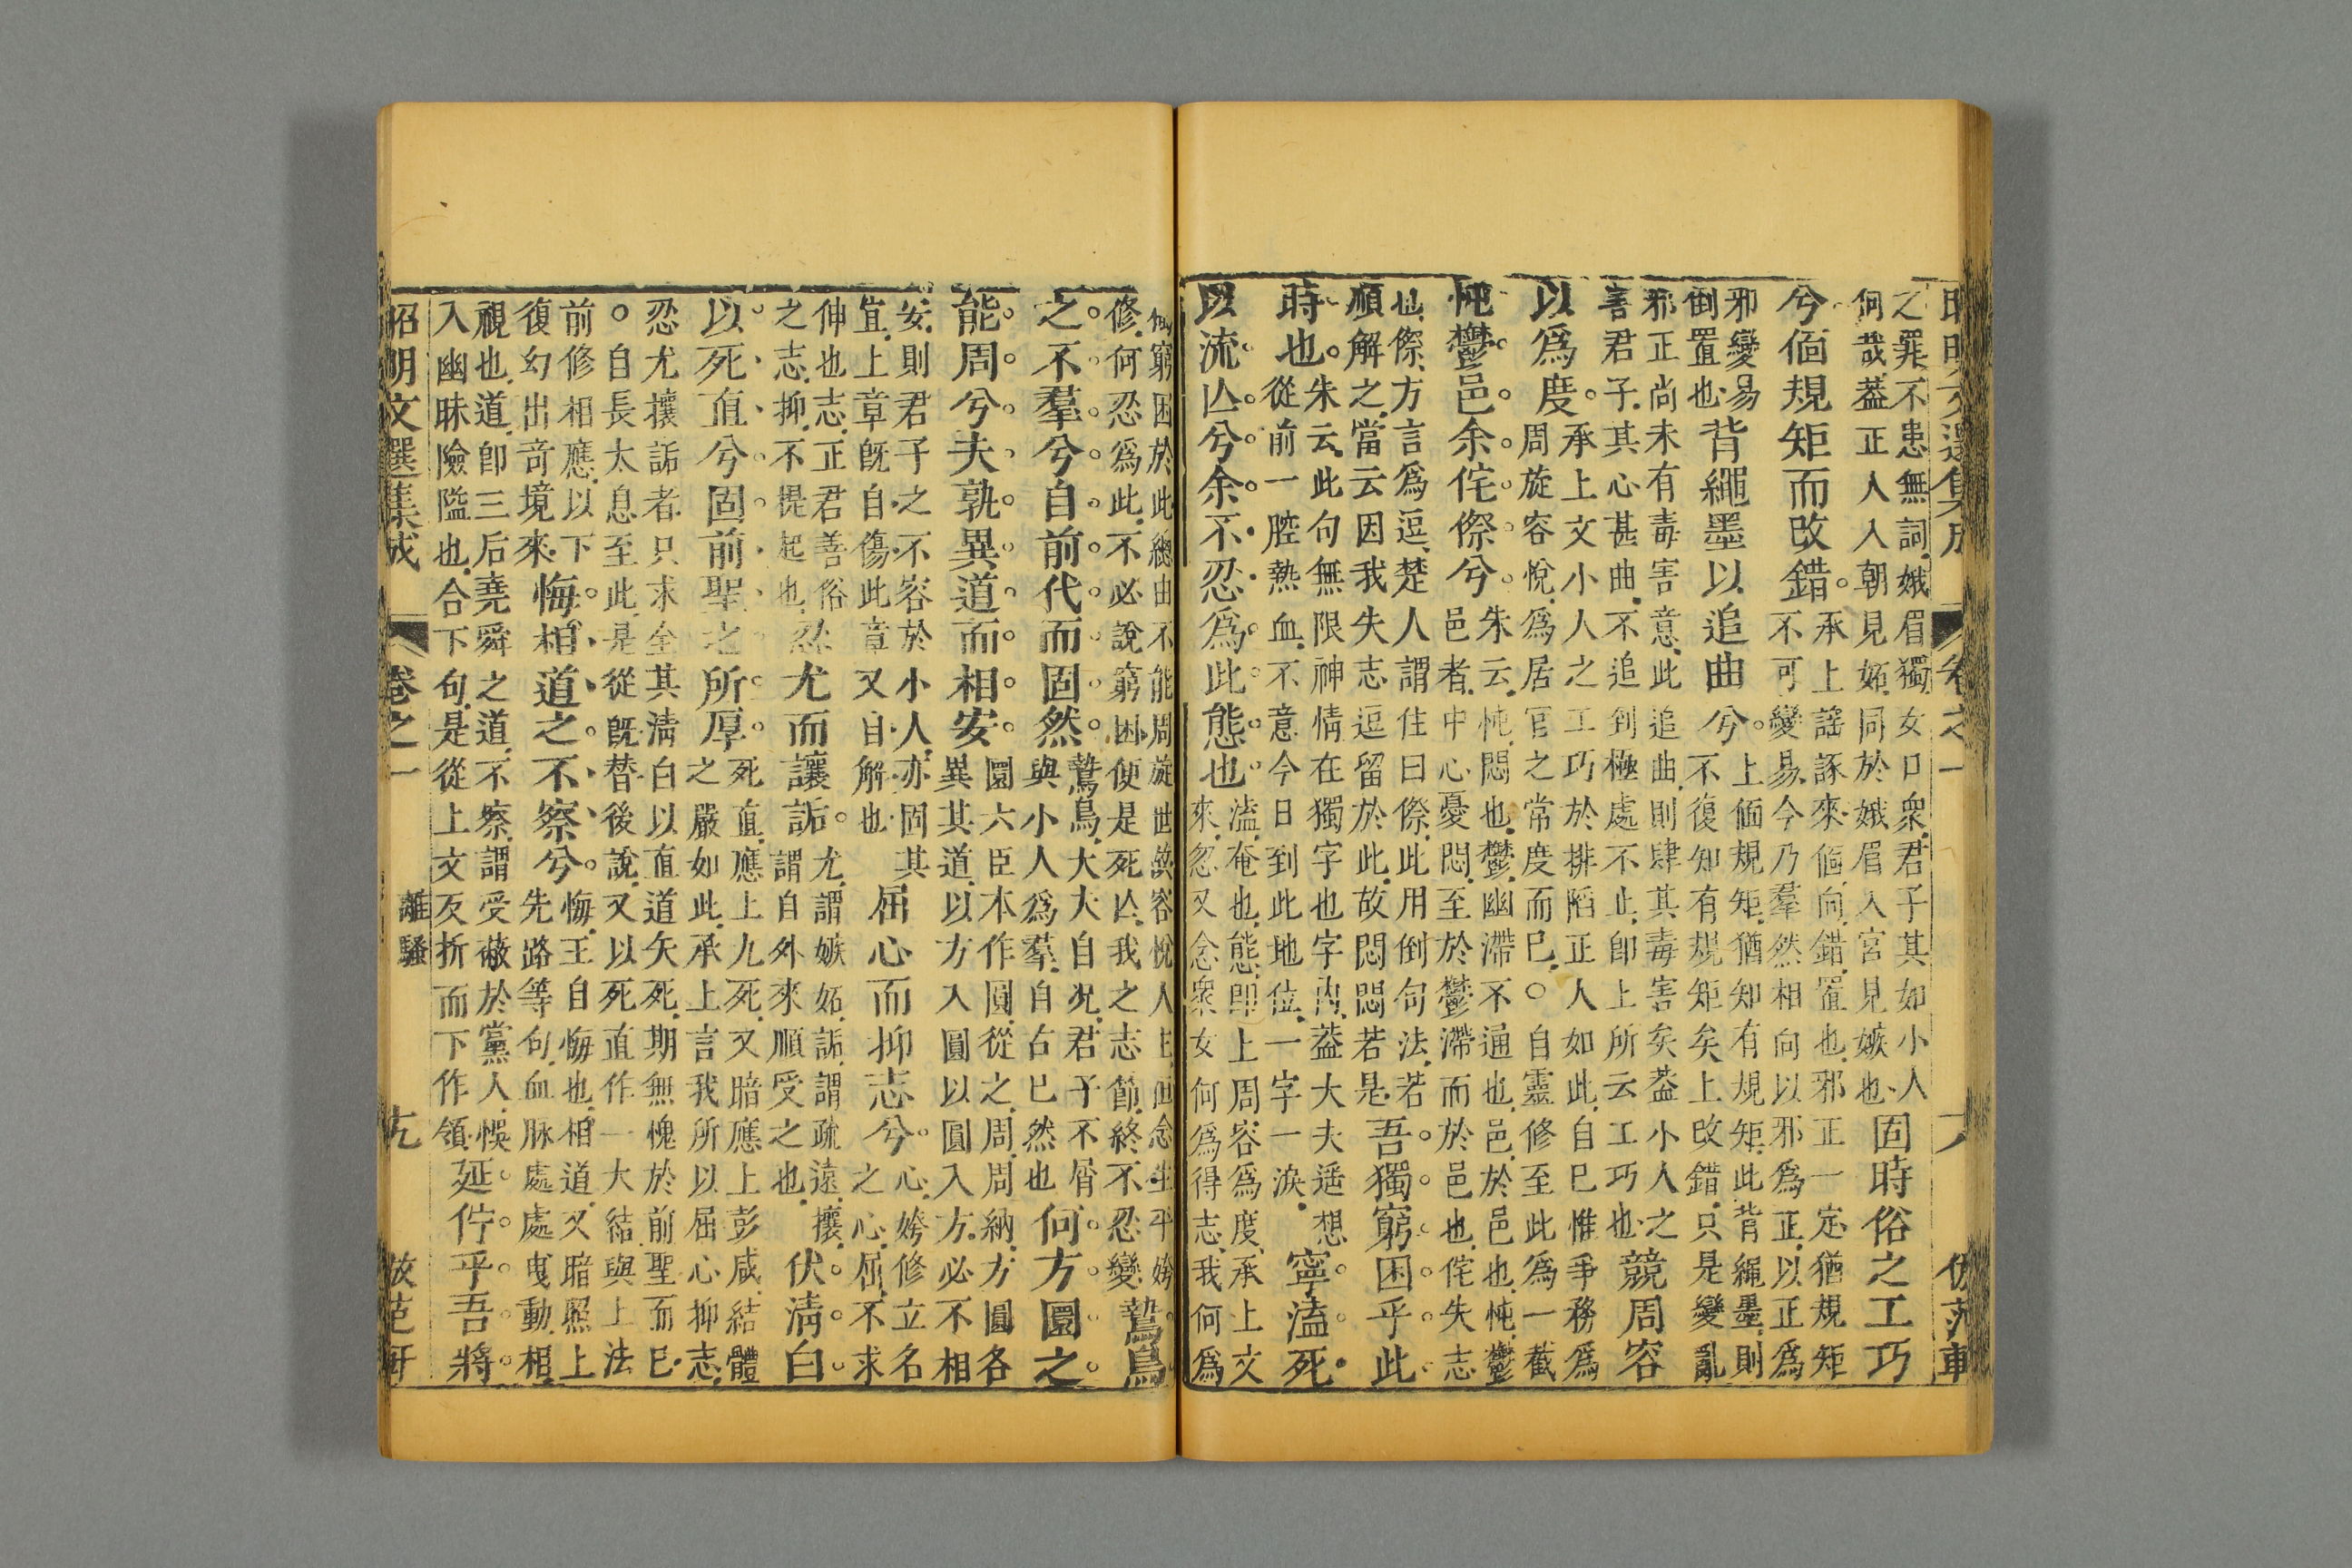 昭明文選集成 卷之一 八 倣范軒
之罪不患無詞娥眉獨女口衆君子其如小人
何哉葢正人入朝見妬同於娥眉入宮見嫉也
固時俗之工巧
兮偭規矩而改錯。
承上謠諑來偭向錯置也邪正一定猶規矩
不可變易今乃羣然相向以邪爲正以正爲
邪變易
倒置也
背繩墨以追曲兮。
上偭規矩猶知有規矩此背繩墨則
不復知有規矩矣上改錯只是變亂
邪正尚未有毒害意此追曲則肆其毒害矣葢小人之
害君子其心甚曲不追到極處不止卽上所云工巧也
競周容
以爲度。
承上文小人之工巧於排陷正人如此自已惟爭務爲
周旋容悅爲居官之常度而已○自靈修至此爲一截
忳鬱邑。余侘傺兮
朱云忳悶也鬱幽滯不通也邑於邑也忳鬱
邑者中心憂悶至於鬱滯而於邑也侘失志
也傺方言爲逗楚人謂住曰傺此用倒句法若
順解之當云因我失志逗留於此故悶悶若是
吾獨窮困乎此
時也。
朱云此句無限神情在獨字也字內葢大夫遥想
從前一腔熱血不意今日到此地位一字一淚
寧溘死
以流亾兮余不忍爲此態也
溘奄也態卽上周容爲度承上文
來忽又念衆女何爲得志我何爲
窮困於此總由不能周旋世容悅人主但念生平姱
修何忍爲此不必說窮困便是死亾我之志節終不忍變
鷙鳥
之不羣兮自前代而固然。
鷙鳥大夫自况君子不屑
與小人爲羣自古已然也
何方圜之
能周兮夫孰異道而相安。
圜六臣本作圓從之周周納方圓各
異其道以方入圓以圓入方必不相
安則君子之不容於小人亦固其
宜上章旣自傷此章又自解也
屈心而抑志兮
心姱修立名
之心屈不求
伸也志正君善俗
之志抑不提起也
忍尤而讓詬。
尤謂嫉妬詬謂疏遠攘
謂自外來順受之也
伏清白
以死直兮固前聖之所厚。
死直應上九死又暗應上彭咸結體
之嚴如此承上言我所以屈心抑志
忍尤攘詬者只求全其清白以直道矢死期無愧於前聖而已
○自長太息至此是從旣替後說又以死直作一大結與上法
前修相應以下
復幻出奇境來
悔相道之不察兮
悔王自悔也相道又暗照上
先路等句血脉處處曳動相
視也道卽三后堯舜之道不察謂受蔽於黨人悞
入幽昧險隘也合下句是從上文反折而下作領
延佇乎吾將
昭明文選集成 卷之一 離騷 九 倣范軒